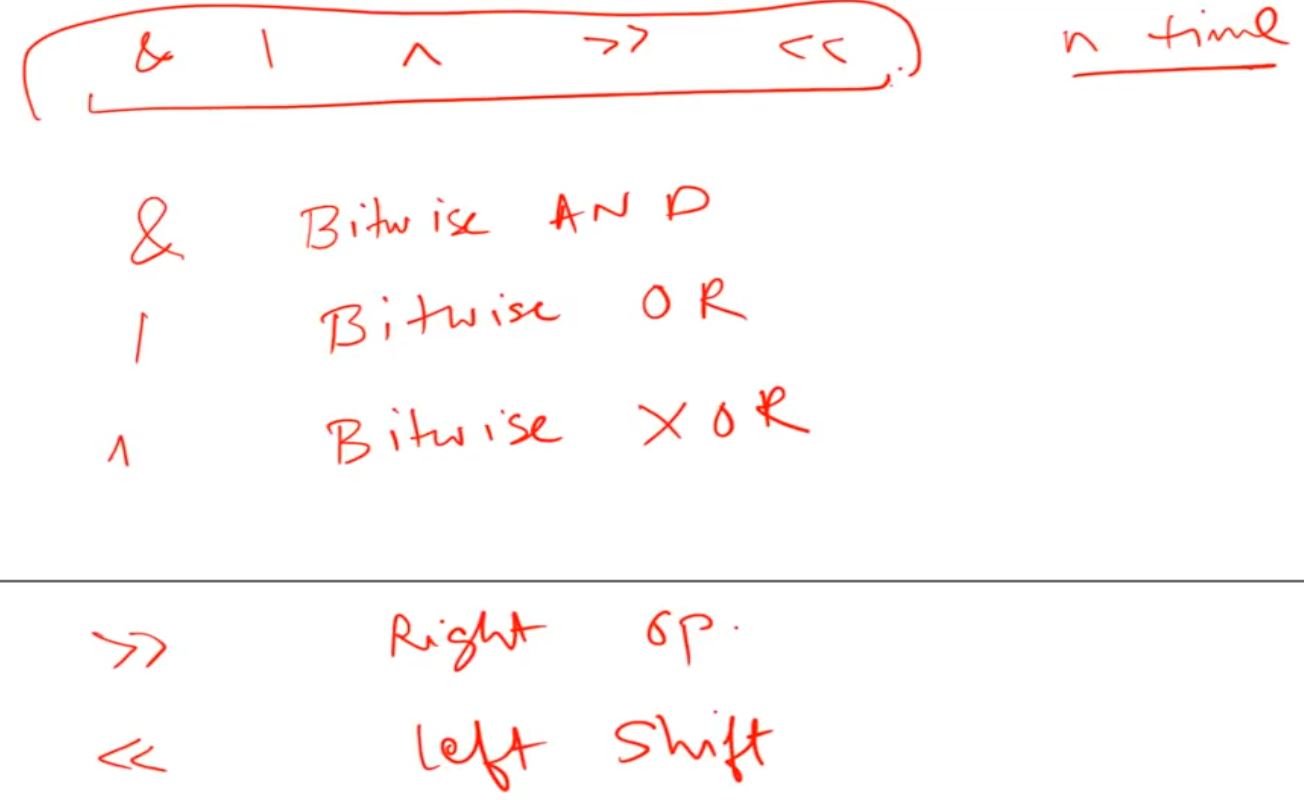 & | ^ >> << n time
& Bitwise AND
| Bitwise OR
^ Bitwise XOR
>> Right op.
<< left shift